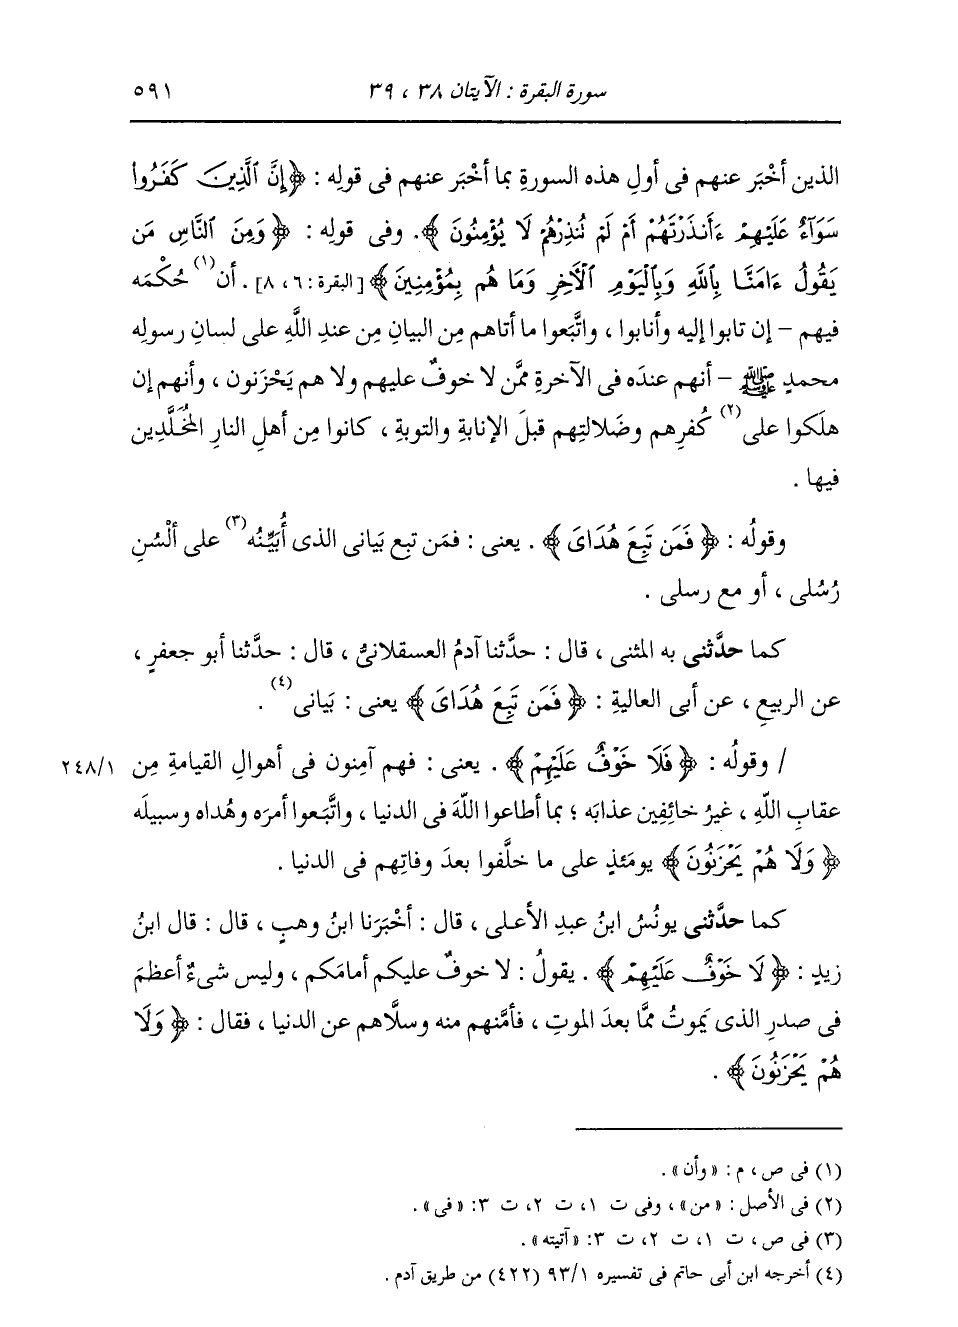 سورة البقرة : الآيتان ٣٨ ، ٣٩ ٥٩١
الذين أخْبَر عنهم فى أولِ هذه السورةِ بما أخْبَر عنهم فى قولِه : ﴿إِنَّ ٱلَّذِينَ كَفَرُواْ
سَوَآءٌ عَلَيْهِمْ ءَأَنذَرْتَهُمْ أَمْ لَمْ تُنذِرْهُمْ لَا يُؤْمِنُونَ﴾. وفى قولِه : ﴿وَمِنَ ٱلنَّاسِ مَن
يَقُولُ ءَامَنَّا بِٱللَّهِ وَبِٱلْيَوْمِ ٱلْأَخِرِ وَمَا هُم بِمُؤْمِنِينَ﴾ [البقرة : ٦، ٨]. أن(١) حُكْمَه
فيهم – إن تابوا إليه وأنابوا ، واتَّبَعوا ما أتاهم مِن البيانِ مِن عندِ اللَّهِ على لسانِ رسولِه
محمدٍ ﷺ – أنهم عندَه فى الآخرةِ ممَّن لا خوفٌ عليهم ولا هم يَحْزَنون ، وأنهم إن
هلَكوا على(٢) كُفرِهم وضَلالتِهم قبلَ الإنابةِ والتوبةِ ، كانوا مِن أهلِ النارِ المُخَلَّدِين
فيها .
وقولُه : ﴿فَمَن تَبِعَ هُدَاىَ﴾ . يعنى : فمَن تبِع بَيانى الذى أُبَيِّنُه(٣) على ألْسُنِ
رُسُلى ، أو مع رسلى .
كما حدَّثنى به المثنى ، قال : حدَّثنا آدمُ العسقلانىُّ ، قال : حدَّثنا أبو جعفرٍ ،
عن الربيعِ ، عن أبى العاليةِ : ﴿فَمَن تَبِعَ هُدَاىَ﴾ يعنى : بَيانى(٤) .
/ وقولُه : ﴿فَلَا خَوْفٌ عَلَيْهِمْ﴾ . يعنى : فهم آمِنون فى أهوالِ القيامةِ مِن ٢٤٨/١
عقابِ اللَّهِ ، غيرُ خائِفِين عذابَه ؛ بما أطاعوا اللَّهَ فى الدنيا ، واتَّبَعوا أمرَه وهُداه وسبيلَه
﴿وَلَا هُمْ يَحْزَنُونَ﴾ يومَئذٍ على ما خلَّفوا بعدَ وفاتِهم فى الدنيا .
كما حدَّثنى يونُسُ ابنُ عبدِ الأعلى ، قال : أخْبَرَنا ابنُ وهبٍ ، قال : قال ابنُ
زيدٍ : ﴿لَا خَوْفٌ عَلَيْهِمْ﴾ . يقولُ : لا خوفٌ عليكم أمامَكم ، وليس شىءٌ أعظمَ
فى صدرِ الذى يَموتُ ممَّا بعدَ الموتِ ، فأمَّنهم منه وسلَّاهم عن الدنيا ، فقال : ﴿وَلَا
هُمْ يَحْزَنُونَ﴾ .
(١) فى ص ، م : «وأن» .
(٢) فى الأصل : «من» ، وفى ت ١، ت ٢، ت ٣: «فى» .
(٣) فى ص، ت ١، ت ٢، ت ٣: «آتيته» .
(٤) أخرجه ابن أبى حاتم فى تفسيره ٩٣/١ (٤٢٢) من طريق آدم .